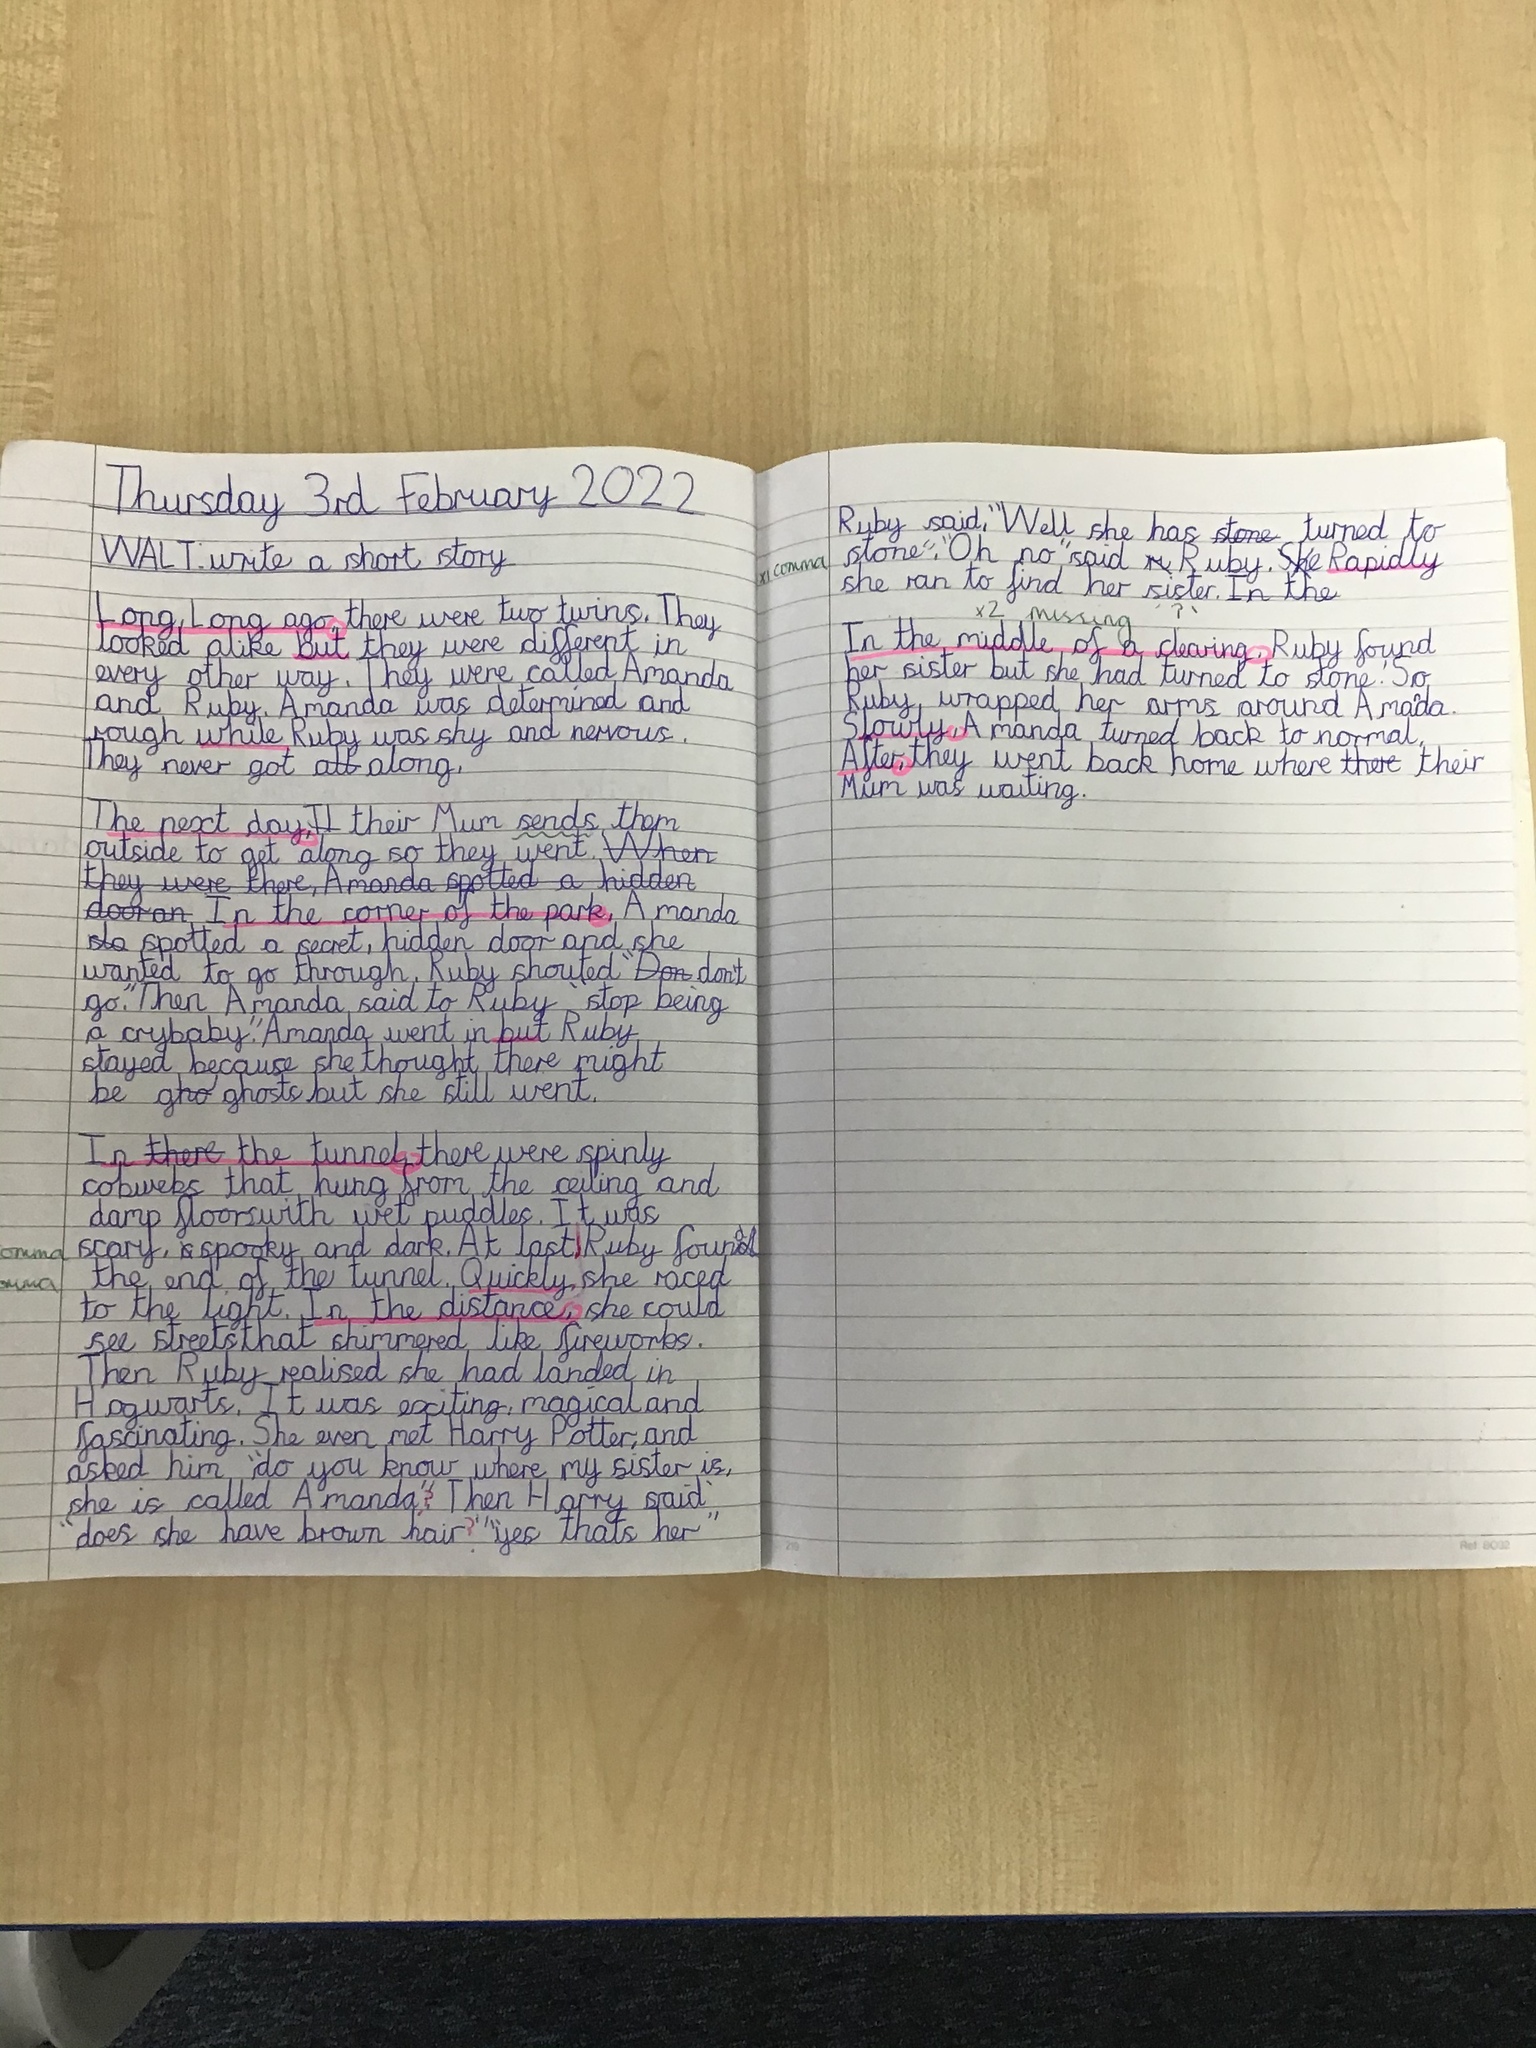 Thursday 3rd February 2022
WALT: write a short story
Long, Long ago, there were two twins. They
looked alike but they were different in
every other way. They were called Amanda
and Ruby. Amanda was determined and
rough while Ruby was shy and nervous.
They never got all along.
The next day, their Mum sends them
outside to get along so they went. When
they were there, Amanda spotted a hidden
door an In the corner of the park, Amanda
sla spotted a secret, hidden door and she
wanted to go through. Ruby shouted "Don don't
go." Then Amanda said to Ruby "stop being
a crybaby." Amanda went in but Ruby
stayed because she thought there might
be gho ghosts but she still went.
In there the tunnel, there were spinly
cobwebs that hung from the ceiling and
damp floors with wet puddles. It was
comma scary, spooky and dark. At last, Ruby found
comma the end of the tunnel. Quickly, she raced
to the light. In the distance, she could
see streets that shimmered like fireworks.
Then Ruby realised she had landed in
Hogwarts. It was exciting, magical and
fascinating. She even met Harry Potter, and
asked him "do you know where my sister is,
she is called Amanda"? Then Harry said
"does she have brown hair?" "yes thats her"
Ruby said, "Well she has stone turned to
x1 comma stone". "Oh no" said Ruby. She Rapidly
she ran to find her sister. In the
x2 missing ?
In the middle of a clearing, Ruby found
her sister but she had turned to stone! So
Ruby, wrapped her arms around Amada.
Slowly, Amanda turned back to normal.
After, they went back home where there their
Mum was waiting.
Ref: BO32